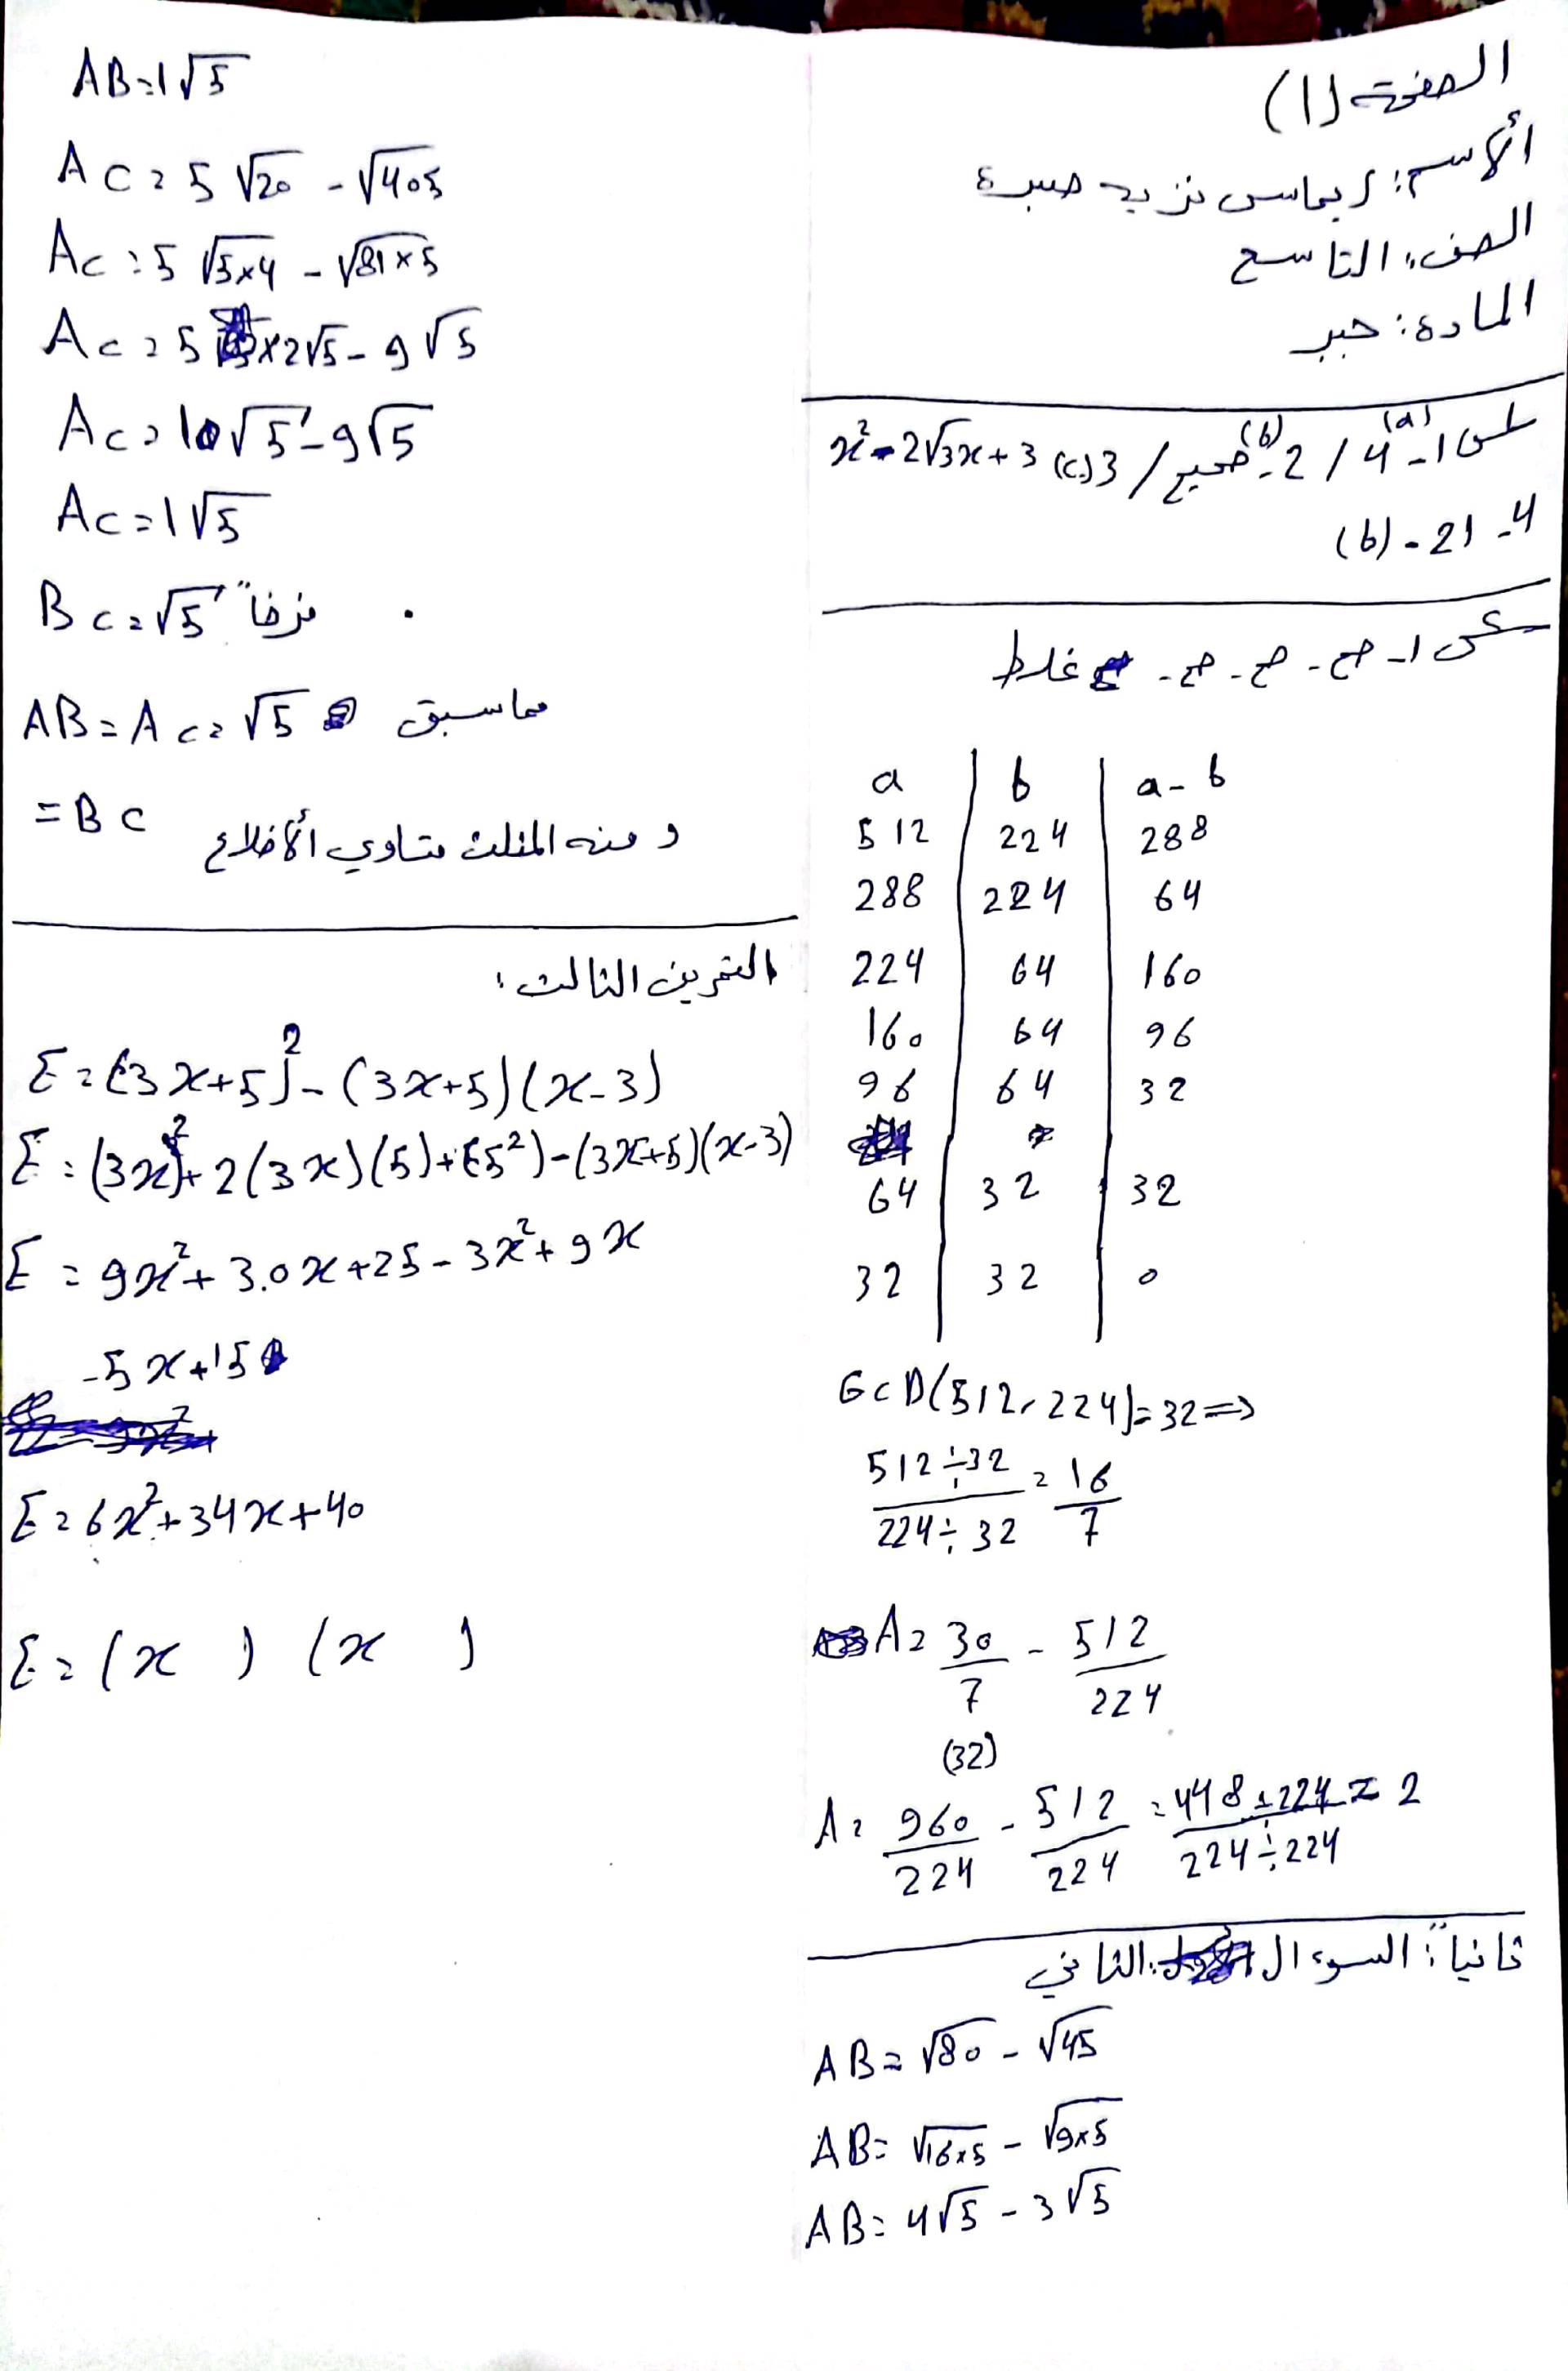 الصفحة (1)
الأسم: ريماس نزيه صبرة
الصف: التاسع
المادة: جبر
س1 1- 4 (a) / 2- صحيح (b) / 3 (c) x² - 2√3x + 3
4- 21 - (b)
س2 1- صح - صح - صح - غلط
a | b | a - b
512 | 224 | 288
288 | 224 | 64
224 | 64 | 160
160 | 64 | 96
96 | 64 | 32
64 | 32 | 32
32 | 32 | 0
GCD(512, 224) = 32 ⇒
512÷32 / 224÷32 = 16/7
A = 30/7 - 512/224
(32)
A = 960/224 - 512/224 = 448÷224 / 224÷224 = 2
ثانياً: السوءال الثاني
AB = √80 - √45
AB = √16×5 - √9×5
AB = 4√5 - 3√5
AB = 1√5
AC = 5 √20 - √405
AC = 5 √5×4 - √81×5
AC = 5 ×2√5 - 9√5
AC = 10√5 - 9√5
AC = 1√5
BC = √5 فرضاً
AB = AC = √5 مما سبق
= BC ومنه المثلث متساوي الأضلاع
التمرين الثالث:
E = (3x+5)² - (3x+5)(x-3)
E = (3x)² + 2(3x)(5) + (5²) - (3x+5)(x-3)
E = 9x² + 30x + 25 - 3x² + 9x
-5x + 15
E = 6x² + 34x + 40
E = (x ) (x )